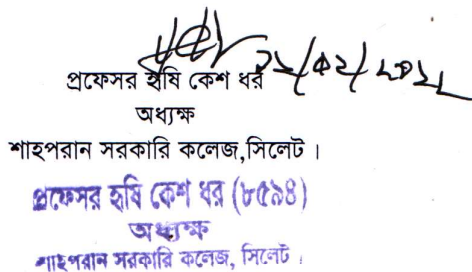 প্রফেসর হৃষি কেশ ধর
অধ্যক্ষ
শাহপরান সরকারি কলেজ,সিলেট ।
প্রফেসর হৃষি কেশ ধর (৮৫৯৪)
অধ্যক্ষ
শাহপরান সরকারি কলেজ, সিলেট ।